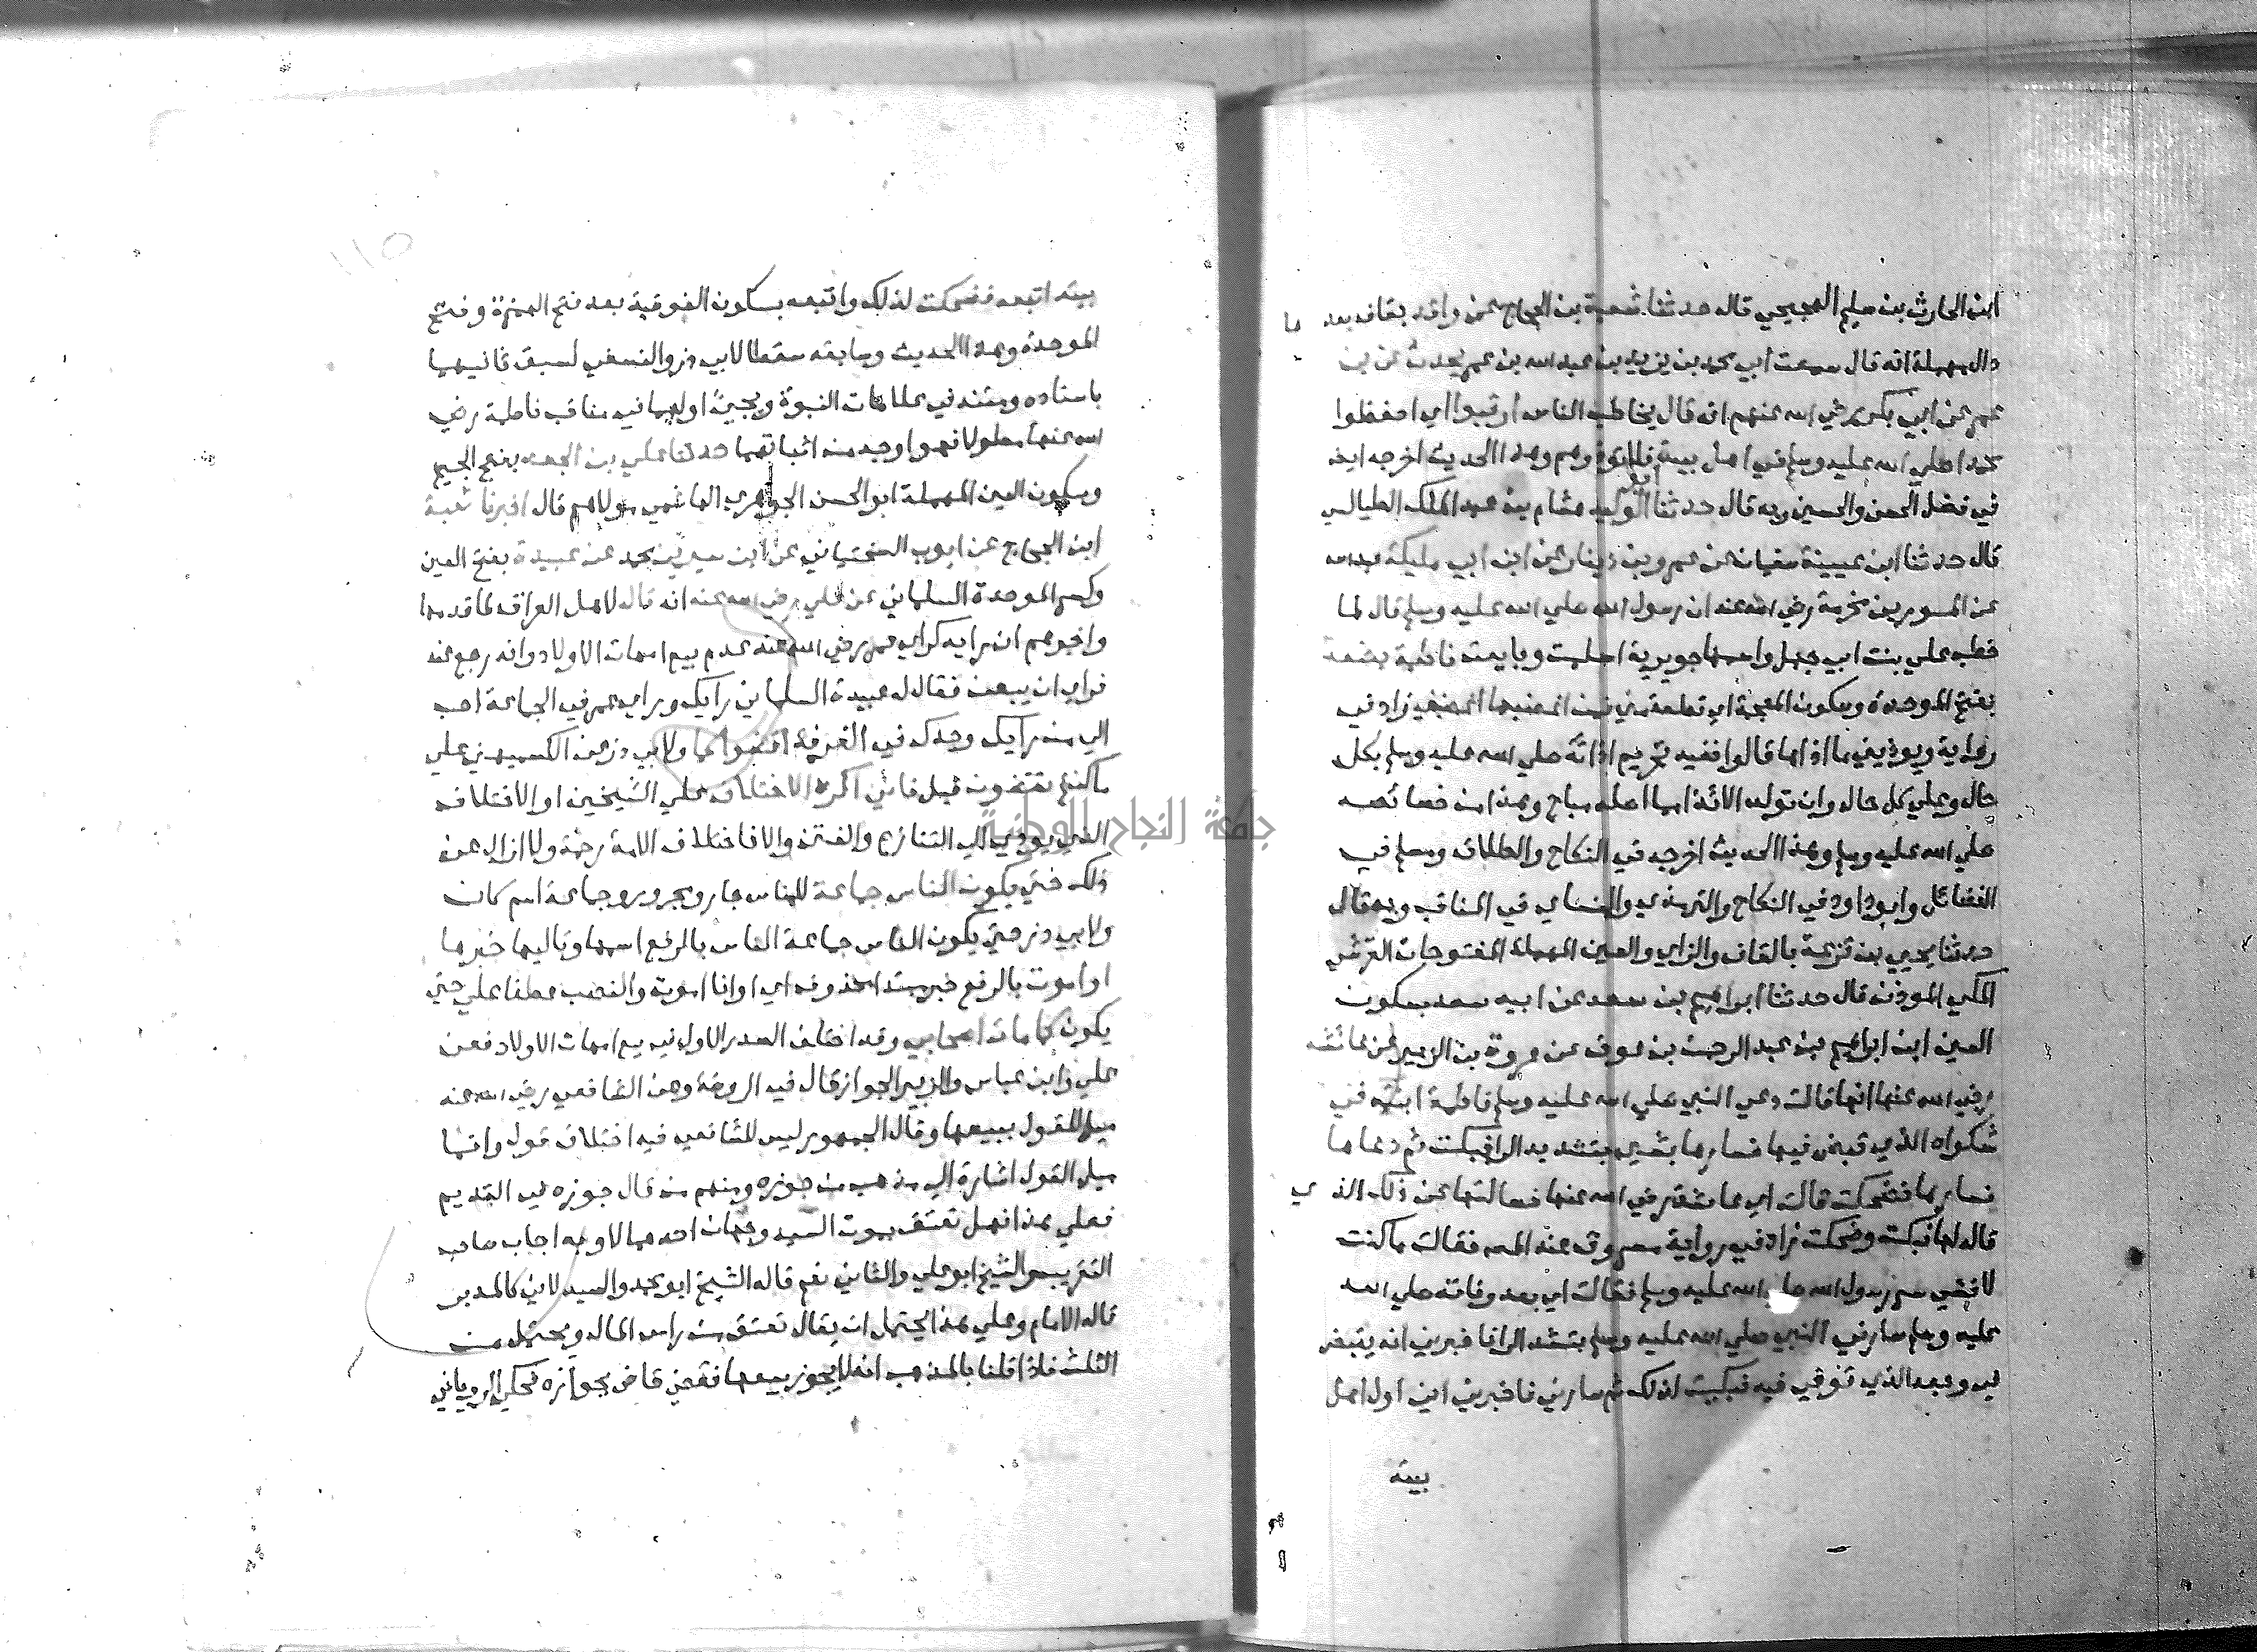 ابن الحارث بن سليم الهجيمي قال حدثنا شعبة بن الحجاج عن واقد بقاف بعدها
دال مهملة انه قال سمعت ابي محمد بن يزيد بن عبد الله بن عمر يحدث عن بن
عمر عن ابي بكر رضي الله عنهم انه قال يخاطب الناس ارقبوا اي احفظوا
محمدا صلي الله عليه وسلم في اهل بيته فلا توذوهم وهذا الحديث اخرجه ايضا
في فضل الحسن والحسين وبه قال حدثنا ابو الوليد هشام بن عبد الملك الطيالسي
قال حدثنا ابن عيينة سفيان عن عمرو بن دينار عن ابن ابي مليكة عبد الله
عن المسور بن مخرمة رضي الله عنه ان رسول الله صلي الله عليه وسلم قال لما
خطب علي بنت ابي جهل واسمها جويرية اسلمت وبايعت فاطمة بضعة
بفتح الموحدة وسكون المعجمة اي قطعة مني فمن اغضبها اغضبني زاد في
رواية ويوذيني ما اذاها قالوا ففيه تحريم اذائه صلي الله عليه وسلم بكل
حال وعلي كل حال وان تولد الاذا مما اصله مباح وهذا من خصائصه
صلي الله عليه وسلم وهذا الحديث اخرجه في النكاح والطلاق ومسلم في
الفضائل وابو داود في النكاح والترمذي والنساي في المناقب وبه قال
حدثنا يحيي بن قزعة بالقاف والزاي والعين المهملة المفتوحات القرشي
المكي الموذن قال حدثنا ابراهيم بن سعد عن ابيه سعد بسكون
العين ابن ابراهيم بن عبد الرحمن بن عوف عن عروة بن الزبير عن عائشة
رضي الله عنها انها قالت دعي النبي صلي الله عليه وسلم فاطمة ابنته في
شكواه الذي قبض فيها فسارها بشيء بتشديد الرا فبكت ثم دعاها
فسارها فضحكت قالت اي عائشة رضي الله عنها فسالتها عن ذلك الذي
قال لها فبكت وضحكت زاد في رواية مسروق عند المص فقالت ما كنت
لافشي سر رسول الله صلي الله عليه وسلم فقالت اي بعد وفاته صلي الله
عليه وسلم سارني النبي صلي الله عليه وسلم بتشد الرا فاخبرني انه يقبض
في وجعه الذي توفي فيه فبكيت لذلك ثم سارني فاخبرني اني اول اهل
بيته
١١٥
بيته اتبعه فضحكت لذلك واتبعه بسكون الفوقية بعد فتح الهمزة وفتح
الموحدة وهذا الحديث وسابقه سقطا لابي ذر والنسفي لسبق ثانيهما
باسناده ومتنه في علامات النبوة ويجيئ اولهما في مناقب فاطمة رضي
الله عنها مطولا فهو اوجه من اثباتهما حدثنا علي بن الجعد بفتح الجيم
وسكون العين المهملة ابو الحسن الجوهري الهاشمي مولاهم قال اخبرنا شعبة
ابن الحجاج عن ايوب السختياني عن ابن سيرين محمد عن عبيدة بفتح العين
وكسر الموحدة السلماني عن علي رضي الله عنه انه قال لاهل العراق لما قدمها
واخبرهم ان رايه كراي عمر رضي الله عنه عدم بيع امهات الاولاد وانه رجع عنه
فراي ان يبعن فقال له عبيدة السلماني رايك وراي عمر في الجماعة احب
الي من رايك وحدك في الفرقة اقضوا كما ولابي ذر عن الكشميهني علي
ما كنتم تقضون قبل فاني اكره الاختلاف علي الشيخين او الاختلاف
الذي يودي الي التنازع والفتن والا فاختلاف الامة رحمة ولا ازال عن
ذلك حتي يكون الناس جماعة للناس جار ومجرور وجماعة اسم كان
ولابي ذر حتي يكون الناس جماعة الناس بالرفع اسمها وتاليها خبرها
او اموت بالرفع خبر مبتدا محذوف اي او انا اموت والنصب عطفا علي حتي
يكون كما مات اصحابي وقد اختلف الصدر الاول في بيع امهات الاولاد فعن
علي وابن عباس والزبير الجواز قال في الروضة وعن الشافعي رضي الله عنه
ميل للقول ببيعها وقال الجمهور ليس للشافعي فيه اختلاف قول وانما
ميل القول اشارة الي مذهب من جوزه ومنهم من قال جوزه في القديم
فعلي هذا فهل تعتق بموت السيد وجهان احدهما لا وبه اجاب صاحب
التقريب والشيخ ابو علي والثاني نعم قاله الشيخ ابو محمد والصيدلاني كالمدبر
قاله الامام وعلي هذا يحتمل ان يقال تعتق من راس المال ويحتمل من
الثلث فاذا قلنا بالمذهب انه لا يجوز بيعها فقضي قاض بجوازه فحكي الروياني
جامعة النجاح الوطنية